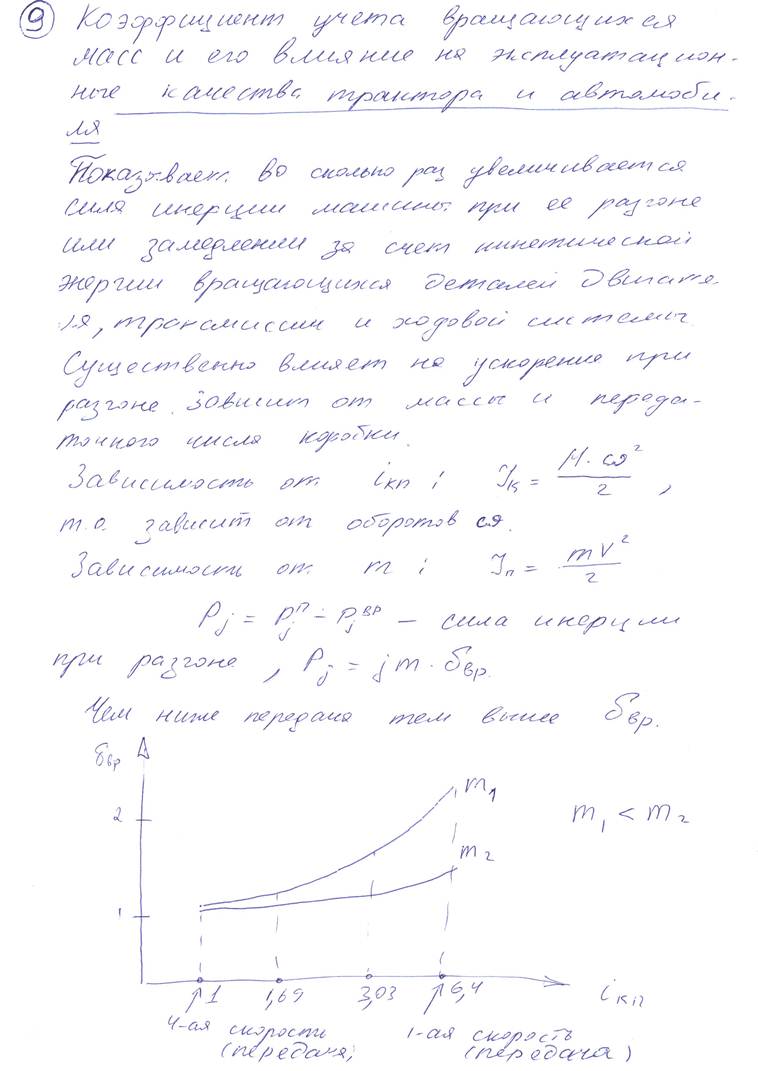 9 Коэффициент учета вращающихся
масс и его влияние на эксплуатацион-
ные качества трактора и автомоби-
ля
Показывает во сколько раз увеличивается
сила инерции машины при ее разгоне
или замедлении за счет кинетической
энергии вращающихся деталей двигате-
ля, трансмиссии и ходовой системы.
Существенно влияет на ускорение при
разгоне. Зависит от массы и переда-
точного числа коробки.
Зависимость от iкп ; Jк = M·ω²/2 ,
т.о. зависит от оборотов ω.
Зависимость от m ; Jп = mV²/2
Pj = Pjп + Pjвр – сила инерции
при разгоне , Pj = jm·δвр.
Чем ниже передача тем выше δвр.
δвр
m₁
2
m₁ < m₂
m₂
1
1 1,69 3,03 6,4 iкп
4-ая скорость 1-ая скорость
(передача) (передача)